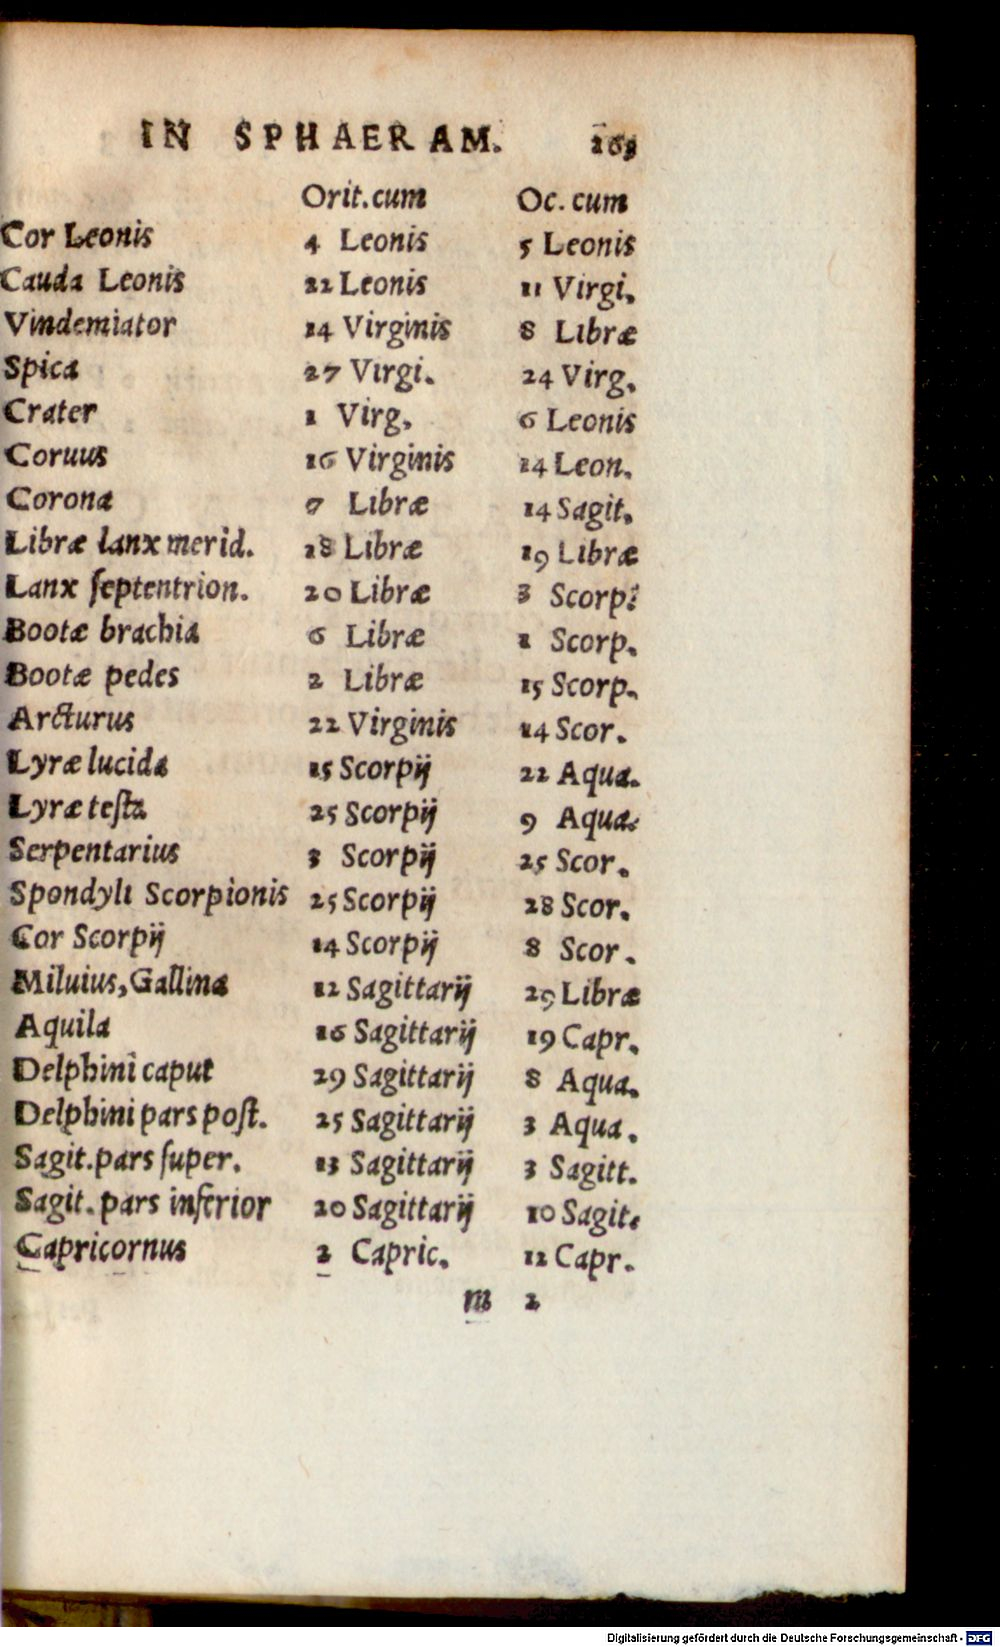 IN SPHAERAM.
Orit.cum Oc. cum
Cor Leonis 4 Leonis 5 Leonis
Cauda Leonis 22 Leonis 11 Virgi.
Vindemiator 14 Virginis 8 Libræ
Spica 27 Virgi. 24 Virg.
Crater 1 Virg. 6 Leonis
Coruus 16 Virginis 14 Leon.
Corona 7 Libræ 14 Sagit.
Libræ lanx merid. 18 Libræ 19 Libræ
Lanx ſeptentrion. 20 Libræ 3 Scorp.
Bootæ brachia 6 Libræ 1 Scorp.
Bootæ pedes 2 Libræ 15 Scorp.
Arcturus 22 Virginis 14 Scor.
Lyræ lucida 15 Scorpij 22 Aqua.
Lyræ teſta 25 Scorpij 9 Aqua.
Serpentarius 3 Scorpij 25 Scor.
Spondyli Scorpionis 25 Scorpij 28 Scor.
Cor Scorpij 14 Scorpij 8 Scor.
Miluius, Gallina 12 Sagittarij 29 Libræ
Aquila 16 Sagittarij 19 Capr.
Delphini caput 29 Sagittarij 8 Aqua.
Delphini pars poſt. 25 Sagittarij 3 Aqua.
Sagit. pars ſuper. 13 Sagittarij 3 Sagitt.
Sagit. pars inferior 20 Sagittarij 10 Sagit.
Capricornus 2 Capric. 12 Capr.
m 2
Digitalisierung gefördert durch die Deutsche Forschungsgemeinschaft - DFG